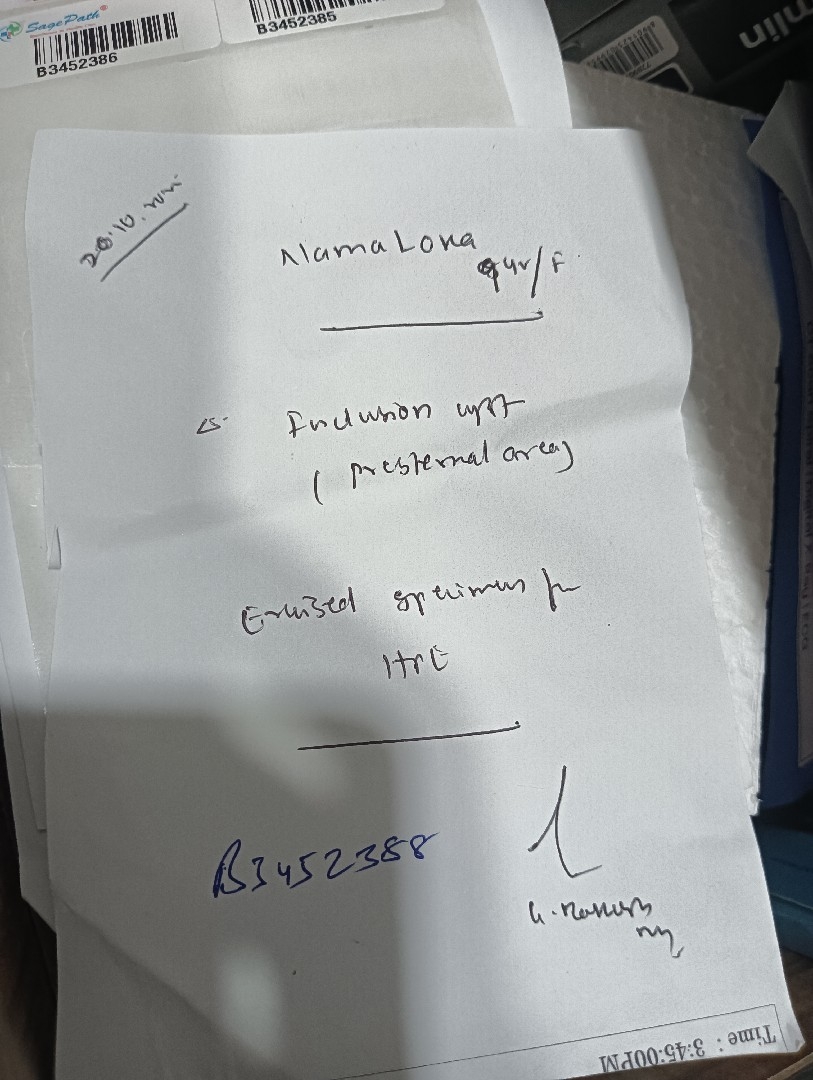 SagePath®
B3452386
B3452385
mlin
20.10.
Nama Lova
9yr/F
Inclusion cyst
(presternal area)
Excised specimen for
HPE
B3452388
Time : 3:45:00PM